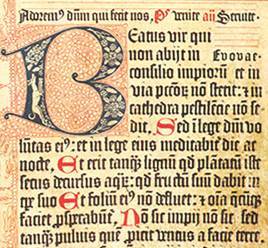 Adorem⁹ dñm qui fecit nos, p̃s venite añ Servite.
Beatus vir qui
non abijt in Evovae
consilio impioru et in
via pccõꝝ nõ stetit: ⁊ in
cathedra pestilẽcie nõ se-
dit. Sed ĩ lege dñi vo-
lũtas ei⁹: et in lege eius meditabit̃ die ac
nocte. Et erit tanq̃ lignũ qd̃ plãtatũ ẽst
secus decursus aquaꝝ: qd̃ fructũ suũ dabit: in
tpe suo Et foliũ ei⁹ nõ defluet: ⁊ oĩa quecũq̃
faciet ꝓsperabũt̃. Nõ sic impij nõ sic: sed
tanq̃ puluis quẽ proicit ventus a facie terre.